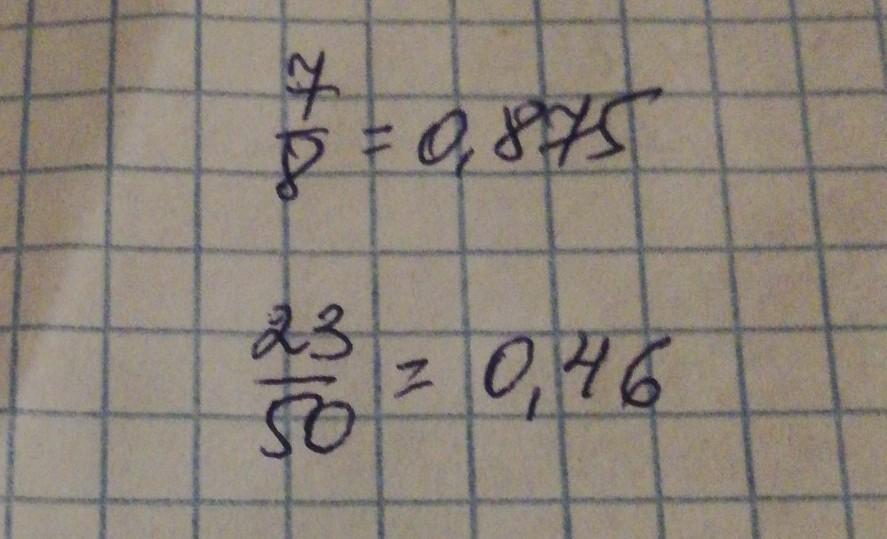 7/8 = 0,875
23/50 = 0,46